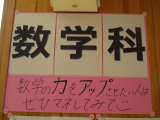 数学科
数学の力をアップさせたい人は
ぜひマネしてみてこ